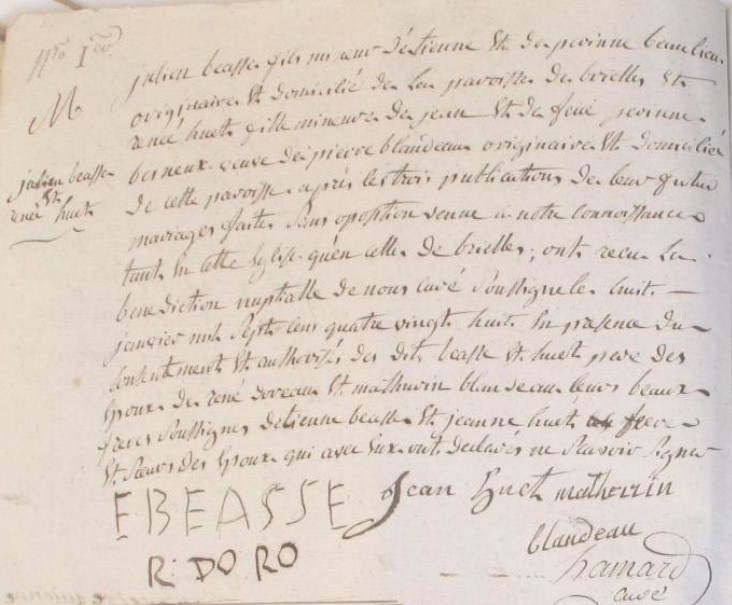 No 1er
M
julien beasse
Et
renée huet
julien beasse fils mineur d'étienne Et de perinne beaulieu
originaire Et domicilié de la paroisse de brielles Et
renée huet fille mineure de jean Et de feue perinne
berneux veuve de pierre blandeau originaire Et domicilié
de cette paroisse après les trois publications de leur futur
mariages faites sans oposition venue a notre connoissance
tant En cette Eglise qu'en celle de brielles, ont recu la
benediction nuptialle de nous curé Soussigné le huit
janvier mil sept cens quatre vingt huit En présence du
consentement Et authorités des dits beasse Et huet pere des
Epoux de rené doreau Et mathurin blandeau leurs beaux
freres Soussignes detienne beasse Et jeanne huet frere
Et Sœur des Epoux qui avec Eux ont declarés ne Scavoir Signer
EBEASSE Jean huet matherrin
R DORO blandeau
hamard
curé